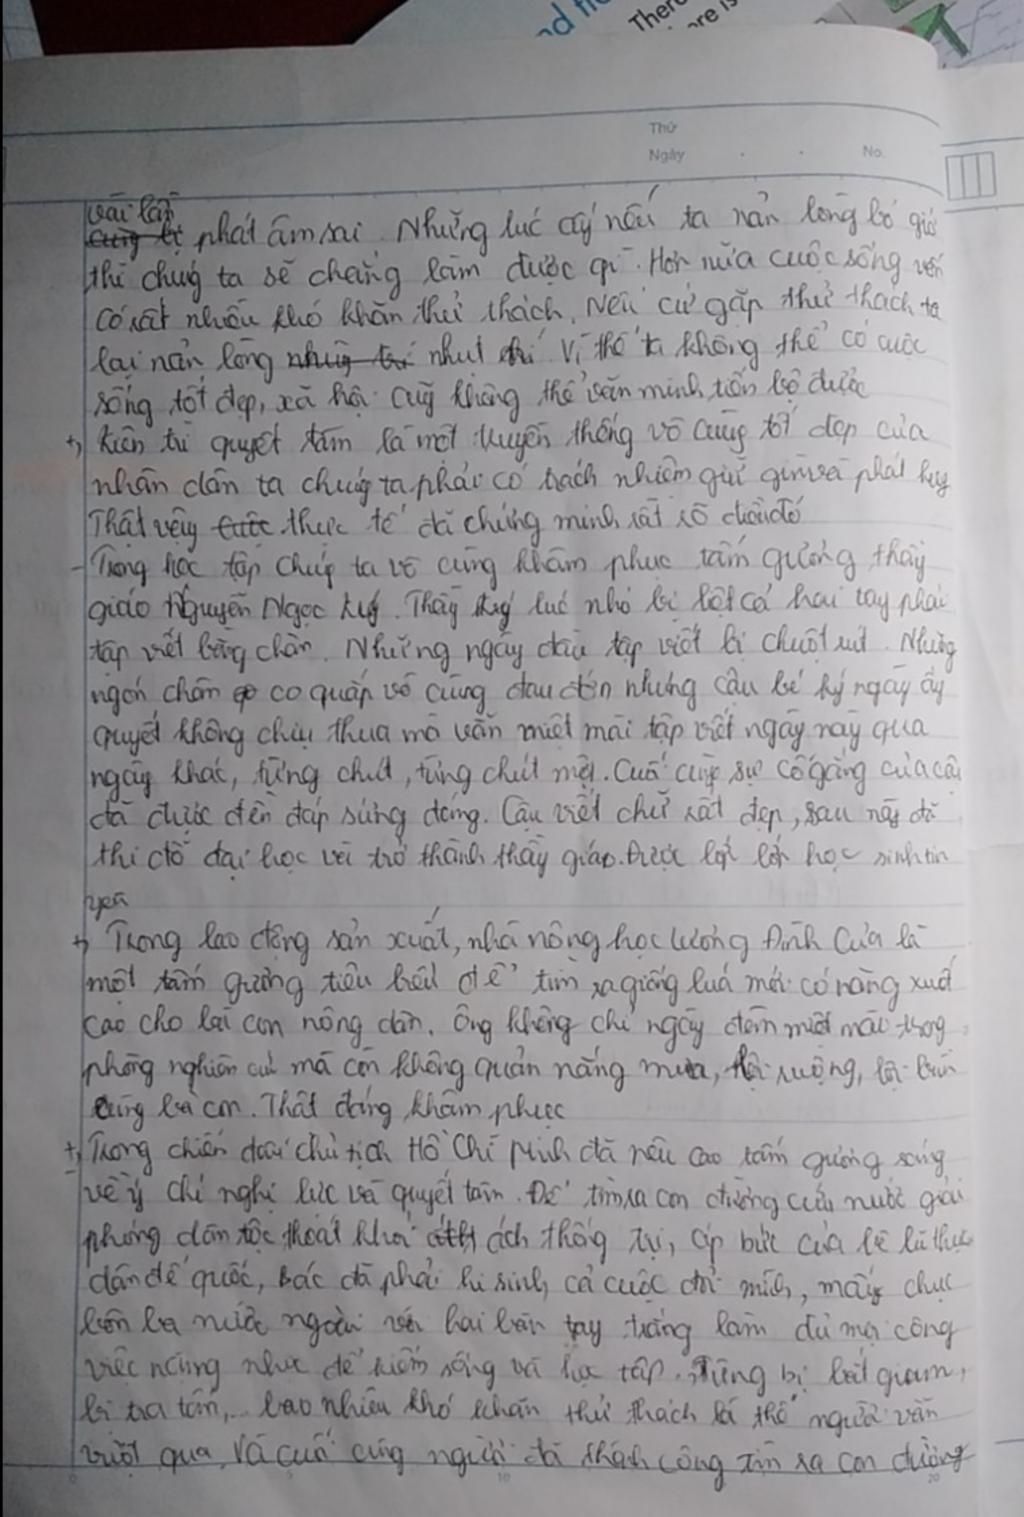 nd
There
ere is
Thứ
Ngày . . No.
vài lần
cũng bị phát âm sai. Những lúc ấy nếu ta nản lòng bỏ giở
thì chúng ta sẽ chẳng làm được gì. Hơn nữa cuộc sống vốn
có rất nhiều khó khăn thử thách, Nếu cứ gặp thử thách ta
lại nản lòng như Vì thế ta không thể có cuộc
sống tốt đẹp, xã hội cũg không thể văn minh, tiến bộ được
+, Kiên trì quyết tâm là một truyền thống vô cùng tốt đẹp của
nhân dân ta chúng ta phải có trách nhiệm giữ gìn và phát huy
Thật vậy cuộc thực tế đã chứng minh rất rõ điều đó
- Trong học tập chúng ta vô cùng khâm phục tấm gương thầy
giáo Nguyễn Ngọc Ký. Thầy Ký lúc nhỏ bị liệt cả hai tay phải
tập viết bằng chân. Những ngày đầu tập viết bị chuột rút. Những
ngón chân co quắp vô cùng đau đớn nhưng cậu bé Ký ngày ấy
quyết không chịu thua mà vẫn miệt mài tập viết ngày này qua
ngày khác, từng chút, từng chút một. Cuối cùng sự cố gắng của cậu
đã được đền đáp xứng đáng. Cậu viết chữ rất đẹp, sau này đã
thi đỗ đại học và trở thành thầy giáo. Được lớp lớp học sinh tin
yêu
+, Trong lao động sản xuất, nhà nông học Lương Đình Của là
một tấm gương tiêu biểu để tìm ra giống luá mới có năng xuất
cao cho bà con nông dân. Ông không chỉ ngày đêm miệt mài trong
phòng nghiên cứu mà còn không quản nắng mưa, lội ruộng, lội bùn
cùng bà con. Thật đáng khâm phục
+, Trong chiến đấu chủ tịch Hồ Chí Minh đã nêu cao tấm gương sáng
về ý chí nghị lực và quyết tâm. Để tìm ra con đường cứu nước giải
phóng dân tộc thoát khỏi ách thống trị, áp bức của bè lũ thực
dân đế quốc, Bác đã phải hi sinh cả cuộc đời mình, mấy chục
bôn ba nước ngoài với hai bàn tay trắng làm đủ mọi công
việc nặng nhọc để kiếm sống và học tập. Từng bị bắt giam,
bị tra tấn,... bao nhiêu khó khăn thử thách là thế người vẫn
vượt qua, Và cuối cùng người đã thành công tìm ra con đường
0 5 10 20